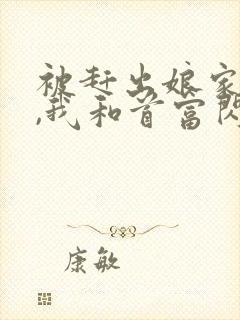 被赶出娘家
,我和首富闪
康敏